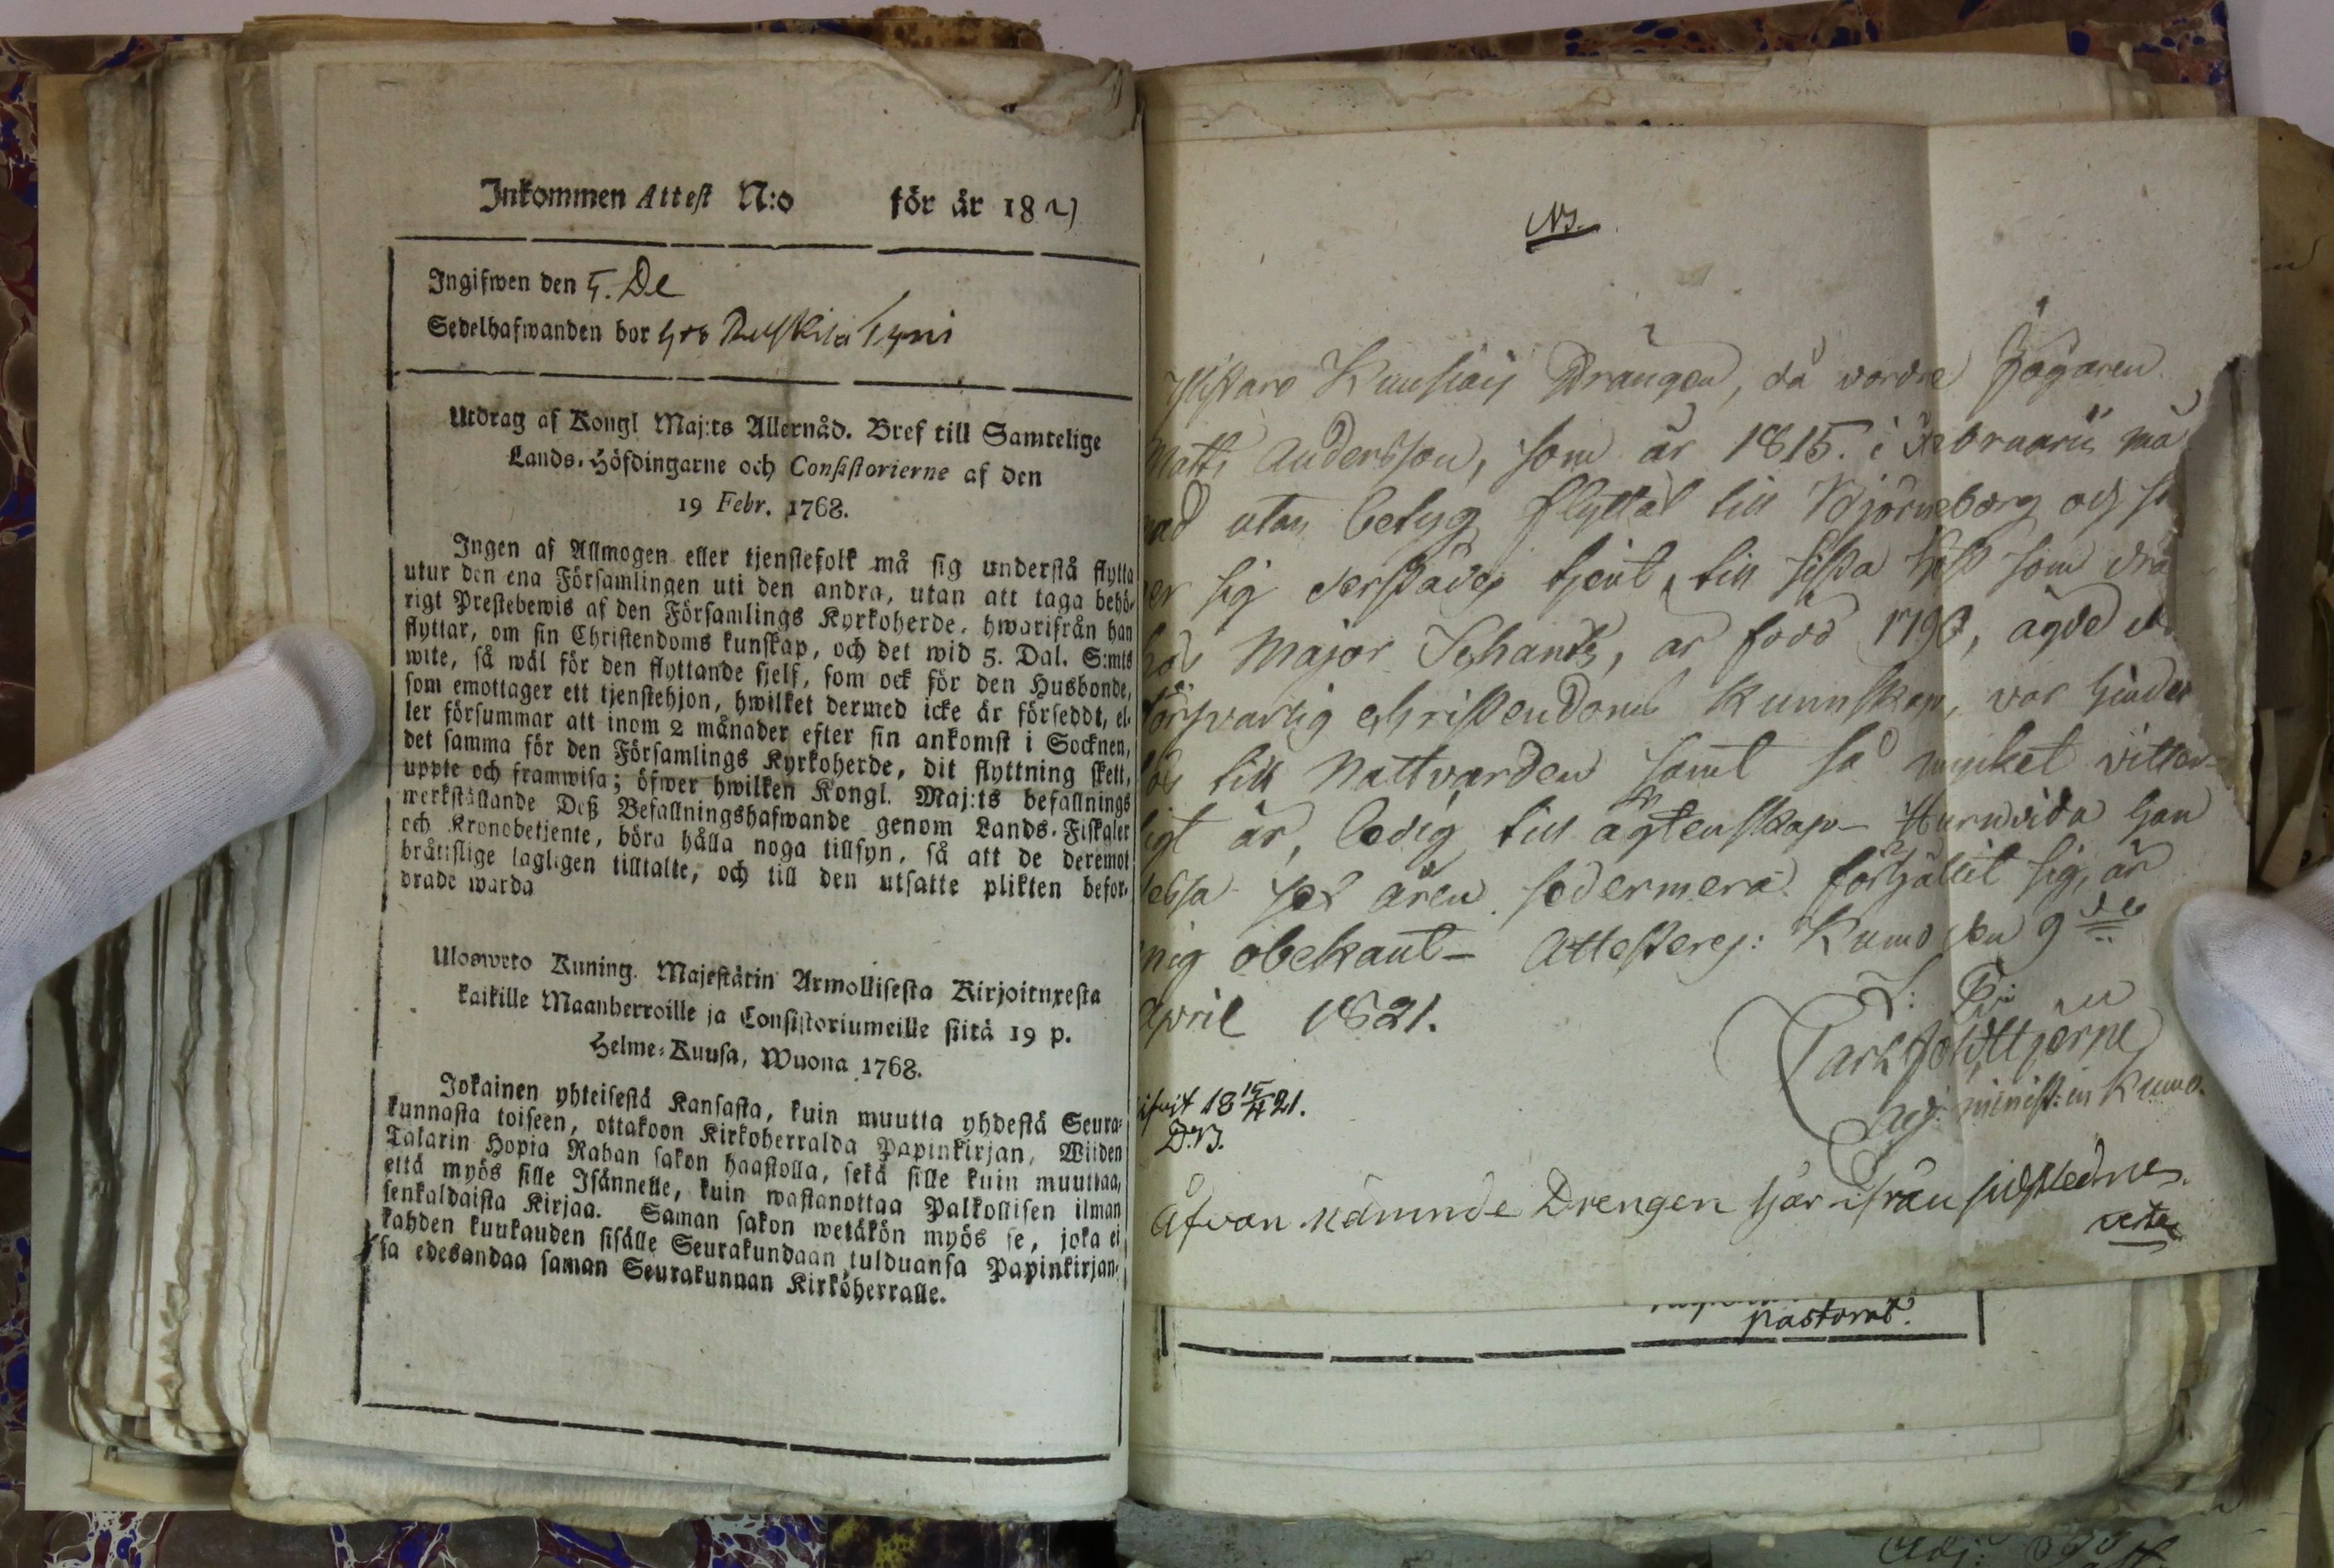 Inkommen Attest N:o för år 1821
Ingifwen den 5. De
Sedelhafwanden bor
Utdrag af Kongl Maj:ts Allernåd. Bref till Samtelige
Lands-Höfdingarne och Consistorierne af den
19 Febr. 1768.
Ingen af Allmogen eller tjenstefolk må sig understå flytta
utur den ena Församlingen uti den andra, utan att taga behö-
rigt Prestebewis af den Församlings Kyrkoherde, hwarifrån han
flyttar, om sin Christendoms kunskap, och det wid 5. Dal. S:mts
wite, så wäl för den flyttande sjelf, som ock för den Husbonde,
som emottager ett tjenstehjon, hwilket dermed icke är förseddt, el-
ler försummar att inom 2 månader efter sin ankomst i Socknen,
det samma för den Församlings Kyrkoherde, dit flyttning skett,
uppte och framwisa; öfwer hwilken Kongl. Maj:ts befallnings
werkställande Deß Befallningshafwande genom Lands-Fiskaler
och Kronobetjente, böra hålla noga tillsyn, så att de deremot
bråtislige lagligen tilltalte, och till den utsatte plikten befor-
drade warda
Uloswetö Kuning. Majestätin Armollisesta Kirjoituxesta
kaikille Maanherroille ja Consistoriumeille siitä 19 p.
Helme-Kuusa, Wuona 1768.
Jokainen yhteisestä Kansasta, kuin muutta yhdestä Seura-
kunnasta toiseen, ottakoon Kirkoherralda Papinkirjan, Wiiden
Talarin Hopia Rahan sakon haastolla, sekä sille kuin muuttaa,
että myös sille Isännelle, kuin wastanottaa Palkollisen ilman
senkaldaista Kirjaa. Saman sakon wetäkön myös se, joka ei
kahden kuukauden sisälle Seurakundaan tulduansa Papinkirjan-
sa edesandaa saman Seurakunnan Kirköherralle.
Drängen, då vorde Jägaren
Matts Andersson, som år 1815. i Februarii må
nad utan betyg flyttat till Björneborg och
sig derstädes tjent, till sista höst som
hos Major Schantz, är född 1790, ägde
försvarlig Christendoms Kunnskap, var hinder
lös till Nattvarden samt så mycket vitter-
ligt är, ledig till ägtenskap- Huruvida han
dessa sex åren sedermera förhållit sig, är
mig obekant- Attesterej: Kumo den 9de
April 1821.
L: P:
Carl Joh: Tjerne
Adj: minist: in Kumo.
18 15/4 21.
D.B.
Åfvan nämnde Drengen har ifrån sidstledne
verte
pastorat.